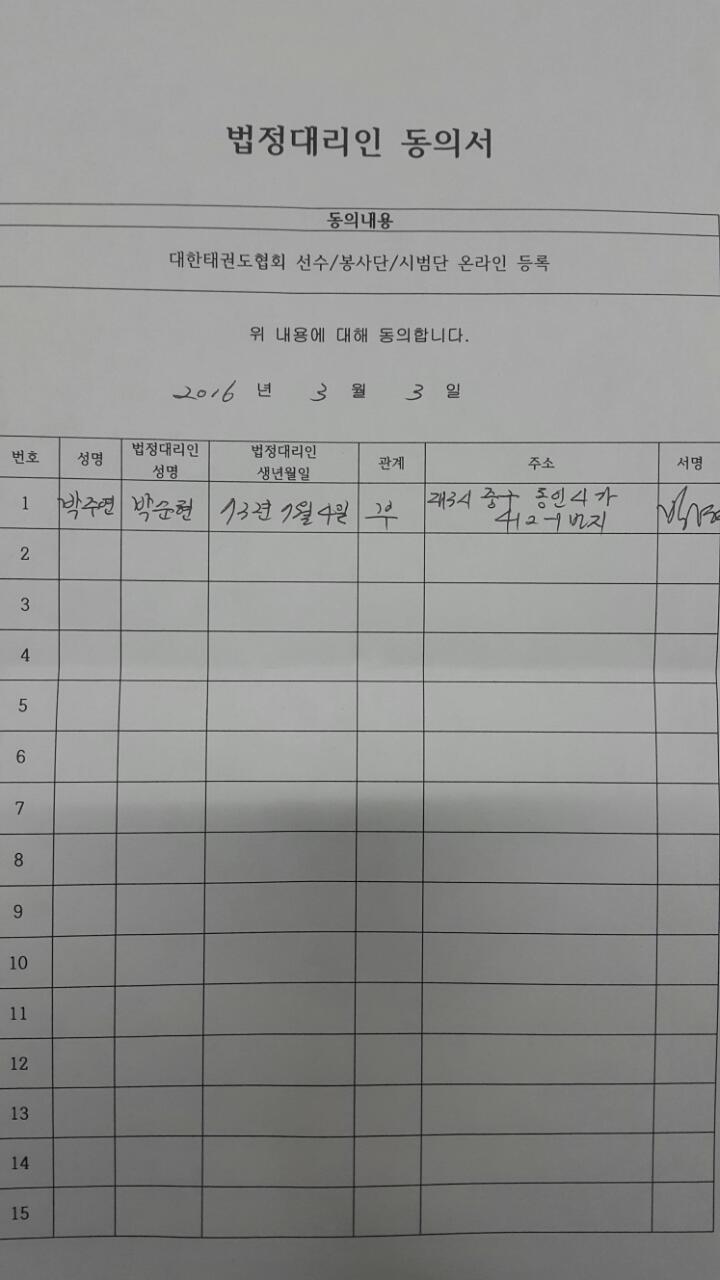 법정대리인 동의서
동의내용
대한태권도협회 선수/봉사단/시범단 온라인 등록
위 내용에 대해 동의합니다.
2016 년 3 월 3 일
번호 성명 법정대리인 성명 법정대리인 생년월일 관계 주소 서명
1 박주연 박순현 73년 7월 4일 부 중구 동인4가
412-1번지
2
3
4
5
6
7
8
9
10
11
12
13
14
15